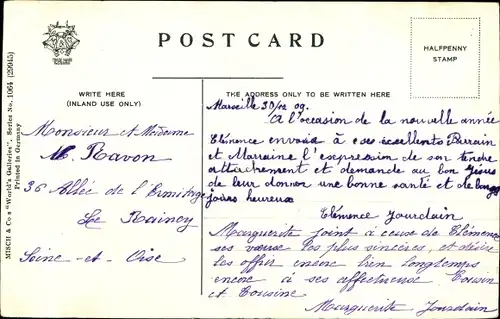 POST CARD
HALFPENNY
STAMP
WRITE HERE
(INLAND USE ONLY)
THE ADDRESS ONLY TO BE WRITTEN HERE
MISCH & Co's "World's Galleries". Series No. 1064 (20945)
Printed in Germany
Monsieur et Madame
Ravon
36 Allée de l'Ermitage
Le Raincy
Seine-et-Oise
Marseille 30/12 09.
A l'occasion de la nouvelle année
Clémence envoie à ses excellents Parrain
et Marraine l'expression de son tendre
attachement et demande au bon Jésus
de leur donner une bonne santé et de longs
jours heureux
Clémence Jourdain
Marguerite joint à ceux de Clémence
ses vœux les plus sincères, et désire
les offrir encore bien longtemps
encore à ses affectueux Cousin
et Cousine
Marguerite Jourdain